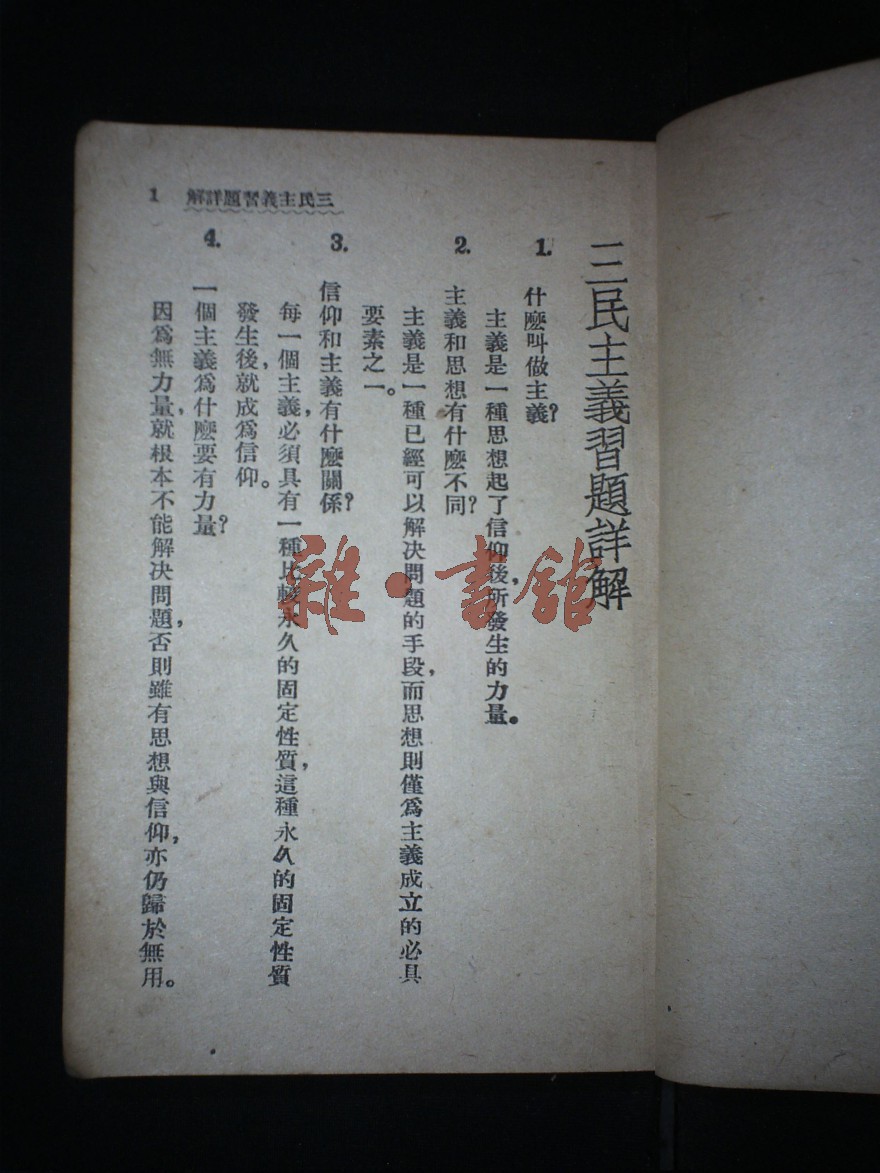 三民主義習題詳解
1.
什麽叫做主義?
主義是一種思想起了信仰後,所發生的力量。
2.
主義和思想有什麽不同?
主義是一種已經可以解决問題的手段,而思想則僅爲主義成立的必具
要素之一。
3.
信仰和主義有什麽關係?
每一個主義,必須具有一種比較永久的固定性質,這種永久的固定性質
發生後,就成爲信仰。
4.
一個主義爲什麽要有力量?
因爲無力量,就根本不能解决問題,否則雖有思想與信仰,亦仍歸於無用。
三民主義習題詳解
1
雜·書館